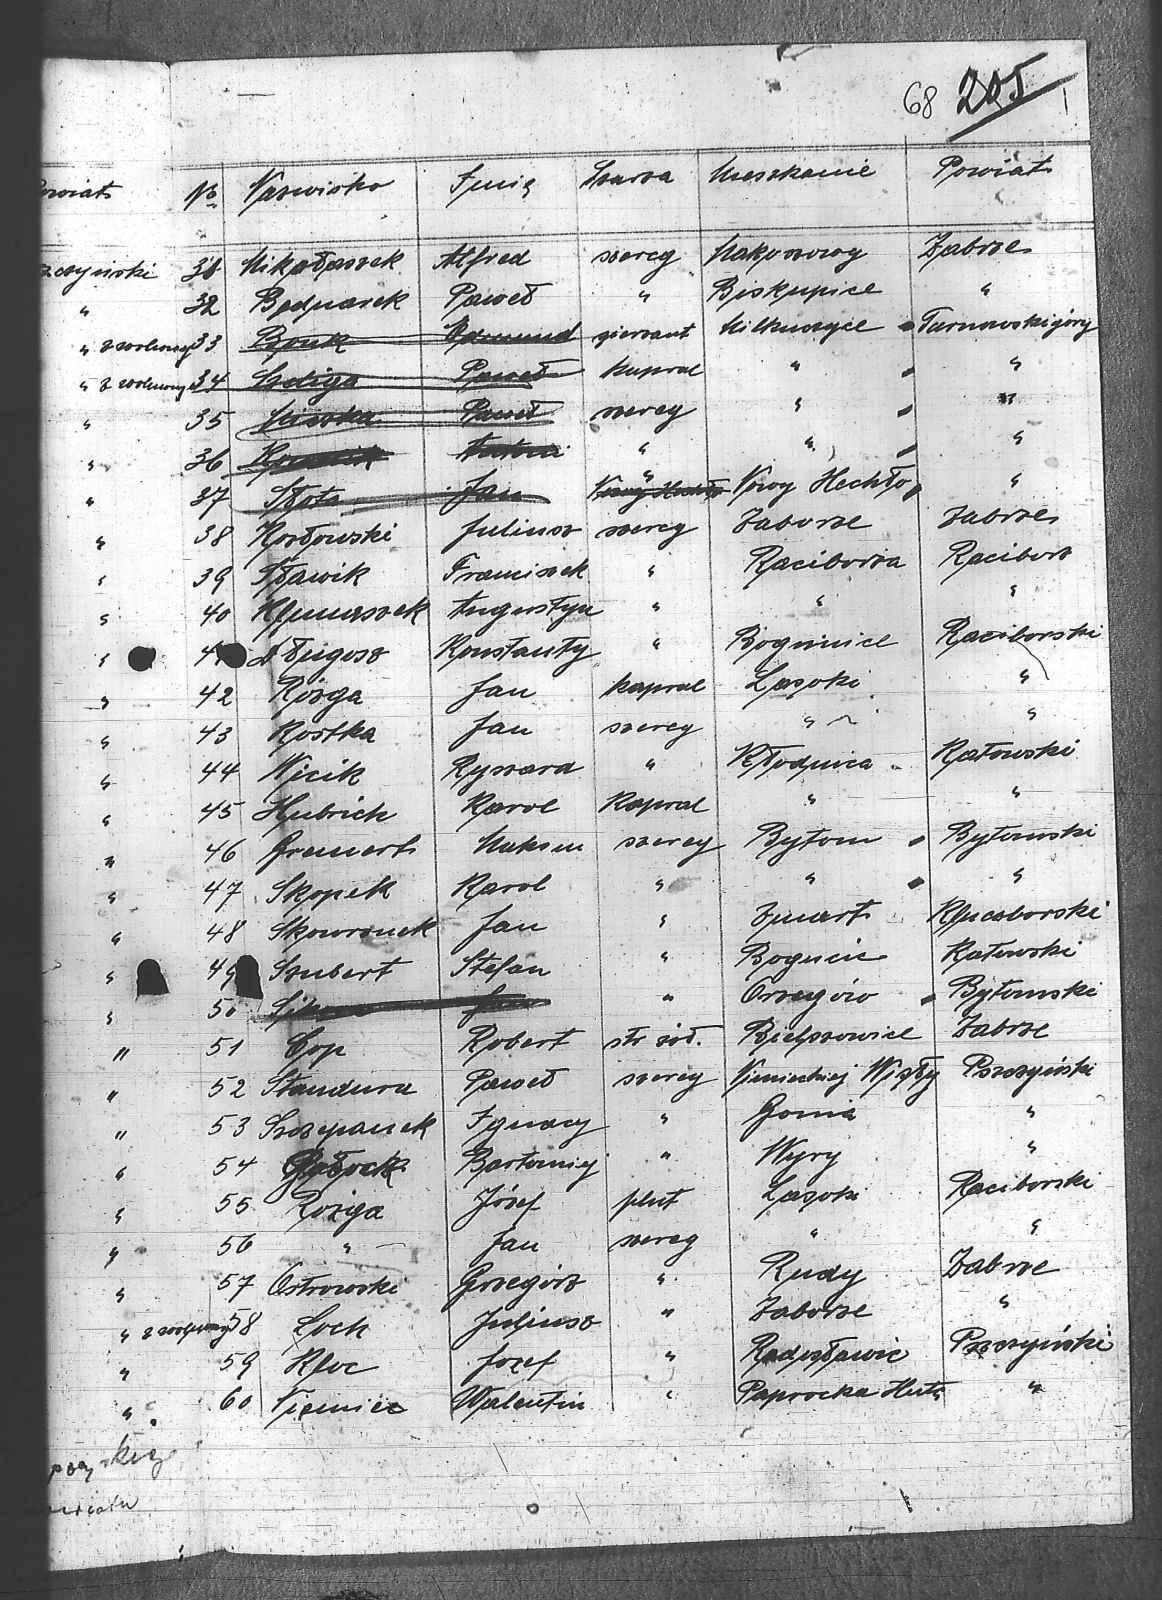 68 205
Powiat № Nazwisko Imię Szarża Mieszkanie Powiat
31 Mikołaszek Alfred szereg Makoszowy Zabrze
" 32 Bednarek Paweł " Biskupice "
" zwolniony 33 Bonk Edmund sierżant Mikulczyce Tarnowskigóry
" zwolniony 34 Szeliga Paweł kapral " "
" 35 Paweł szereg " "
" 36 " " "
" 37 Słota Jan " Nowy Hechło "
" 38 Kozłowski Juliusz szereg Zaborze Zabrze
" 39 Sławik Franciszek " Racibórza Racibórz
" 40 Klymaszek Augustyn " " "
" 41 Długosz Konstanty " Bogunice Raciborski
" 42 Rózga Jan kapral Lasoki "
" 43 Kostka Jan szereg " "
" 44 Wicik Ryszard " Kłodnica Katowski
" 45 Hubrich Karol Kapral " "
" 46 Grenert Maksym szereg Bytom Bytomski
" 47 Skopek Karol " " "
" 48 Skowronek Jan " Kluczborski
" 49 Szubert Stefan " Bogucic Katowski
" 50 Jan " Orzegów Bytomski
" 51 Cop Robert str. żoł. Bielszowice Zabrze
" 52 Standura Paweł szereg Niemieckiej Wisły Pszczyński
" 53 Szczepanek Ignacy " Gornia "
" 54 Bartomiej " Wyry "
" 55 Rózga Józef plut Lasoki Raciborski
" 56 " Jan szereg " "
" 57 Ostrowski Grzegórz " Rudy Zabrze
" zwolniony 58 Loch Juljusz " Zaborze "
" 59 Kloc Jozef " Radosławic Pszczyński
" 60 Niemiec Walentin " Paprocka Huta "